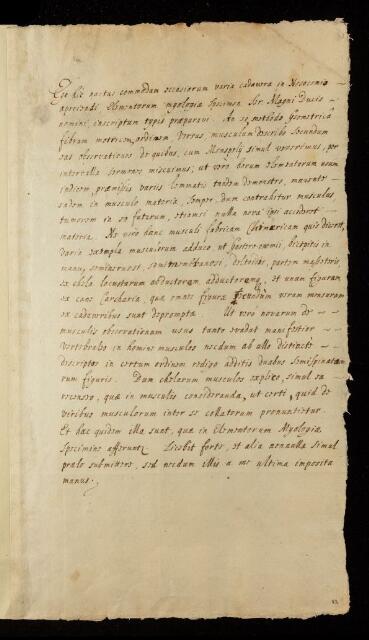 Ego hic nactus commodam occasionem varia cadavera in Nosocomio
aperiendi Elementorum Myologiæ Specimen Ser. Magni Ducis
nomini inscriptum typis præparavi. In eo methodo Geometrica
fibram motricem ordinem versus, musculum describo secundum
eas observationes de quibus, cum Monspelij simul versaremur, per
intervalla sermones miscuimus; ut vero horum Elementorum usum
indicem, præmissis variis lemmatis tandem demonstro, manente
eadem in musculo materia, semper, dum contrahitur musculus
tumorem in eo futurum, etiamsi nulla nova ipsi accederet
materia. Ne vero hanc musculi fabricam Chimæricam quis diceret,
varia exempla musculorum adduco, ut gastrocnemii, bicipitis in
manu, seminervosi, semimembranosi, deltoidis, partem majoris
ex chela locustarum abductorem, adductorem, et unam figuram
ex cane Carcharia, quæ omnes figuræ secundum veram mensuram
ex cadaveribus sunt depromptæ. Ut vero novarum de
musculis observationum usus tanto evadat manifestior
vertebrales in homine musculos necdum ab ullo distincte
descriptos in certum ordinem redigo additis duabus semispinatam
rum figuris. Dum chelarum musculos explico, simul ea
recenseo, quæ in musculis consideranda, ut certi quid de
viribus musculorum inter se collatorum pronuntietur.
Et hæc quidem illa sunt, quæ in Elementorum Myologiæ
Specimine afferuntur. Licebit forte, et alia nonnulla simul
prælo submittere, sed necdum illis a me ultima imposita
manus.